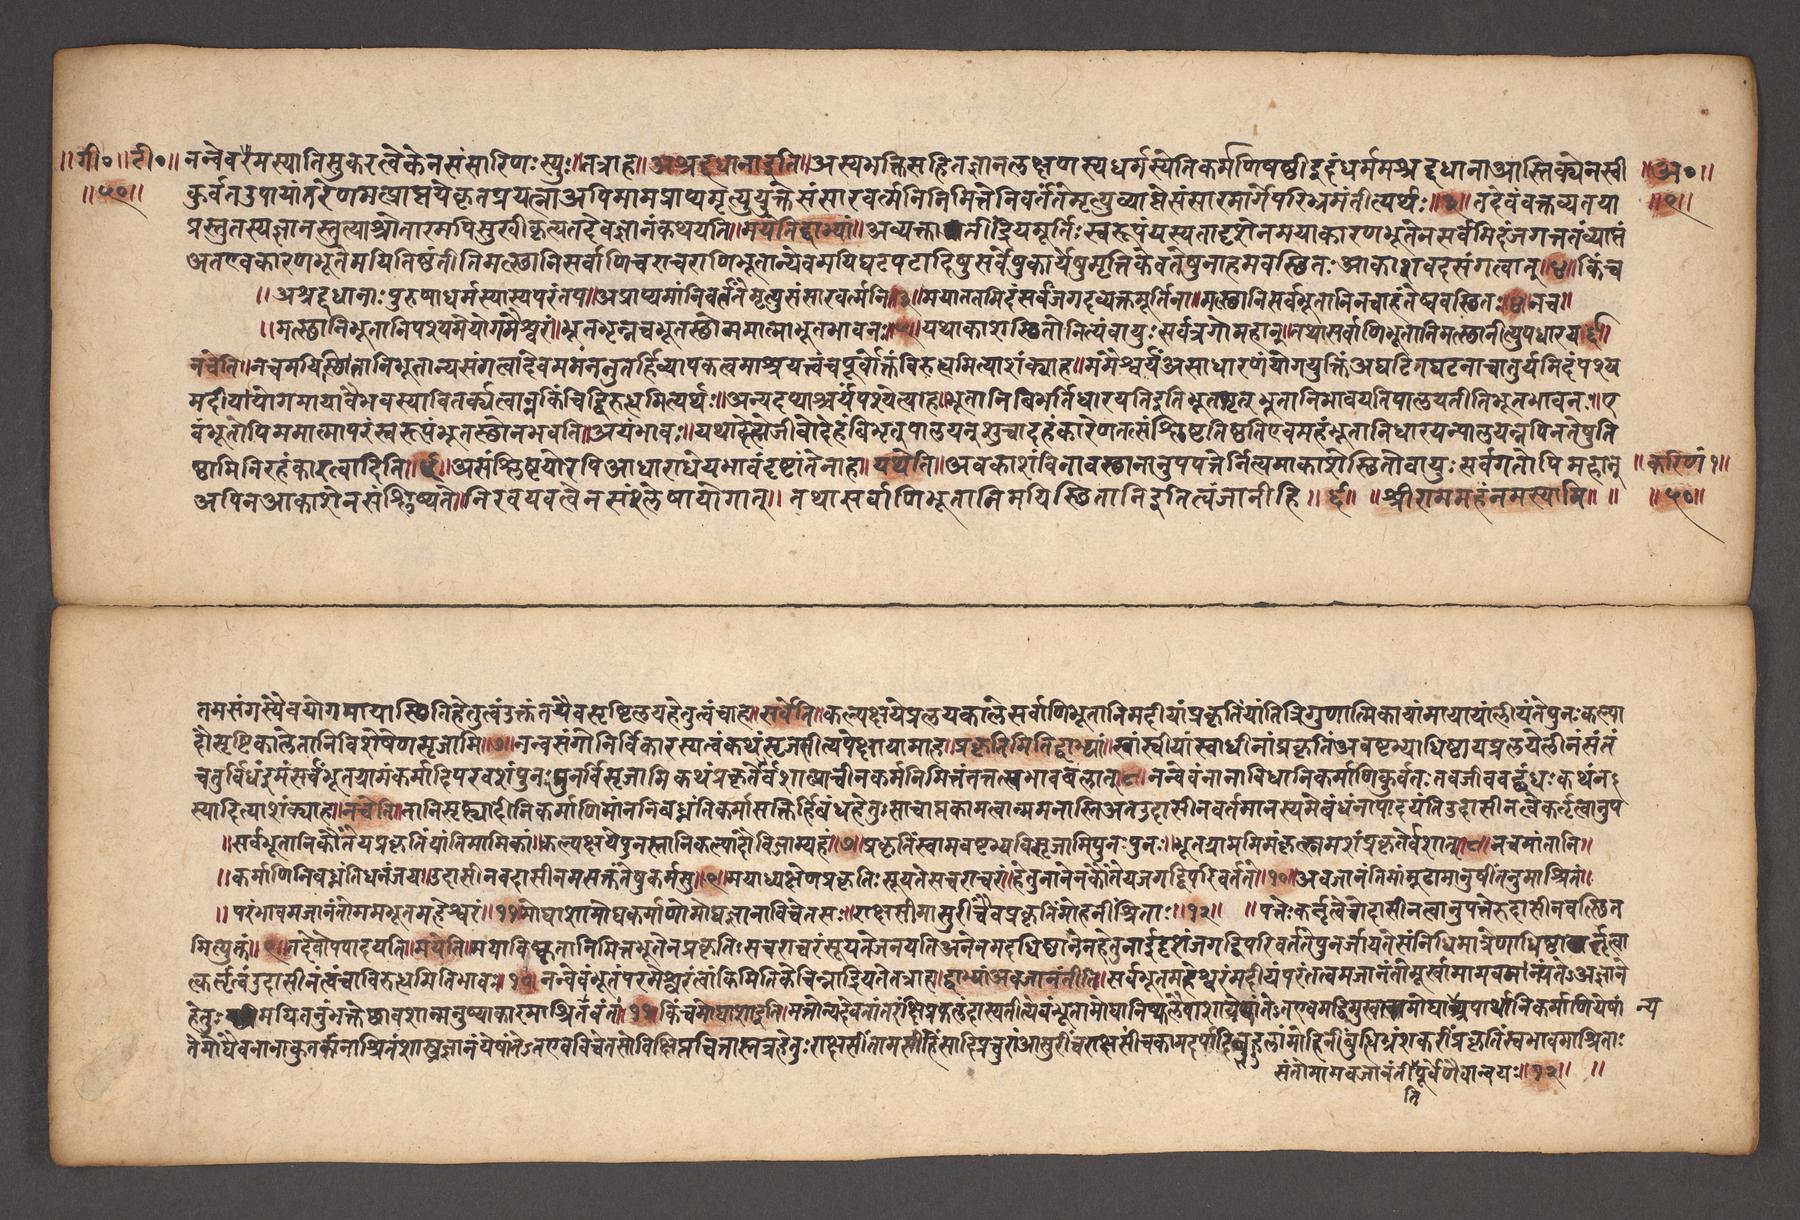 ॥गी०॥टी०॥ नन्वेवमस्यातिसुकरत्वेकेनसंसारिणःस्युः॥तत्राह॥अश्रद्दधानाइति॥अस्यभक्तिसहितज्ञानलक्षणस्यधर्मस्येतिकर्मणिषष्ठीइदंधर्ममश्रद्दधानाआस्तिक्येनस्वी ॥अ०॥
॥५०॥ कुर्वतउपायांतरेणमत्प्राप्तयेकृतप्रयत्नाअपिमामप्राप्यमृत्युयुक्तेसंसारवर्त्मनिनिमित्तेनिवर्ततेमृत्युव्याप्तेसंसारमार्गेपरिभ्रमंतीत्यर्थः॥३॥तदेवंवक्तव्यतया ॥९॥
प्रस्तुतस्यज्ञानस्तुत्याश्रोतारमपिसुखीकृत्यतदेवज्ञानंकथयति॥मयेतिद्वाभ्यां॥अव्यक्ताअतींद्रियमूर्तिःस्वरूपंयस्यतादृशेनमयाकारणभूतेनसर्वमिदंजगत्ततंव्याप्तं
अतएवकारणभूतेमयितिष्ठंतीतिमत्स्थानिसर्वाणिचराचराणिभूतान्येवमपिघटपटादिषुसर्वेषुकार्येषुमृत्तिकेवतेषुनाहमवस्थितःआकाशवदसंगत्वात्॥४॥किंच
॥अश्रद्दधानाःपुरुषाधर्मस्यास्यपरंतप॥अप्राप्यमांनिवर्तंतेमृत्युसंसारवर्त्मनि॥३॥मयाततमिदंसर्वंजगदव्यक्तमूर्तिना॥मत्स्थानिसर्वभूतानिनचाहंतेष्ववस्थितः॥४॥नच॥
॥मत्स्थानिभूतानिपश्यमेयोगमैश्वरं॥भूतभृन्नचभूतस्थोममात्माभूतभावनः॥५॥यथाकाशस्थितोनित्यंवायुःसर्वत्रगोमहान्॥तथासर्वाणिभूतानिमत्स्थानीत्युपधारय॥६॥
नचेति॥नचमयिस्थितानिभूतान्यसंगत्वादेवममंननुतर्हिव्यापकत्वमाश्रयत्वंचपूर्वोक्तंविरुद्धमित्याशंक्याह॥ममैश्वर्यंअसाधारणंयोगयुक्तिंअघटितघटनाचातुर्यमिदंपश्य
मदीयायोगमायावैभवस्यावितर्क्यत्वान्नकिंचिद्विरुद्धमित्यर्थः॥अन्यदप्याश्चर्यंपश्येत्याह॥भूतानिबिभर्तिधारयतिइतिभूतभृत्भूतानिभावयतिपालयतीतिभूतभावनः॥ए
वंभूतोपिममात्मापरंस्वरूपंभूतस्थोनभवति॥अयंभावः॥यथादेहेजीवोदेहंबिभ्रत्पालयन्अहंकारेणतत्संश्लिष्टतिष्ठतिएवमहंभूतानिधारयन्पालयन्नपिनतेषुति
ष्ठामिनिरहंकारत्वादिति॥५॥असंश्लिष्टयोरपिआधाराधेयभावंदृष्टांतेनाह॥यथेति॥अवकाशंविनावस्थानानुपपत्तेर्नित्यमाकाशेस्थितोवायुःसर्वगतोपिमहान् ॥करिणं१॥
अपिनआकाशेनसंश्लिष्यते॥निरवयवत्वेनसंश्लेषायोगात्॥तथासर्वाणिभूतानिमयिस्थितानिइतित्वंजानीहि॥६॥ ॥श्रीराममहंनमस्यामि॥॥ ॥५०॥
तमसंगस्यैवयोगमायास्थितिहेतुत्वंउक्तंतयैवसृष्टिलयहेतुत्वंचाह॥सर्वेति॥कल्पक्षयेप्रलयकालेसर्वाणिभूतानिमदीयांप्रकृतिंयांतित्रिगुणात्मिकायांमायायांलीयंतेपुनःकल्पा
दौसृष्टिकालेतानिविशेषेणसृजामि॥७॥नन्वसंगोनिर्विकारस्यत्वंकथंसृजसीत्यपेक्षायामाह॥प्रकृतिमितिद्वाभ्यां॥स्वांस्वीयांस्वाधीनांप्रकृतिंअवष्टभ्याधिष्ठायप्रलयेलीनंसंतं
चतुर्विधंइमंसर्वंभूतग्रामंकर्मादिपरवशंपुनःपुनर्विसृजामिकथंप्रकृतेर्वशात्प्राचीनकर्मनिमित्तंतत्तत्स्वभावबलात्॥८॥नन्वेवंनानाविधानिकर्माणिकुर्वतःतवजीववद्बंधःकथंन
स्यादित्याशंक्याह॥नचेति॥तानिसृष्ट्यादीनिकर्माणिमांननिबध्नंतिकर्मासक्तिर्हिबंधहेतुःसाचाप्तकामत्वान्ममनास्तिअतउदासीनवर्तमानस्यमेबंधंनापादयंतिउदासीनत्वेकर्तृत्वानुप
॥सर्वभूतानिकौंतेयप्रकृतिंयांतिमामिकां॥कल्पक्षयेपुनस्तानिकल्पादौविसृजाम्यहं॥७॥प्रकृतिंस्वामवष्टभ्यविसृजामिपुनःपुनः॥भूतग्राममिमंकृत्स्नमवशंप्रकृतेर्वशात्॥८॥नचमांतानि॥
॥कर्माणिनिबध्नंतिधनंजय॥उदासीनवदासीनमसक्तंतेषुकर्मसु॥९॥मयाध्यक्षेणप्रकृतिःसूयतेसचराचरं॥हेतुनानेनकौंतेयजगद्विपरिवर्तते॥१०॥अवजानंतिमांमूढामानुषींतनुमाश्रितं॥
॥परंभावमजानंतोममभूतमहेश्वरं॥११॥मोघाशामोघकर्माणोमोघज्ञानाविचेतसः॥राक्षसीमासुरींचैवप्रकृतिंमोहनींश्रिताः॥१२॥ ॥पत्तेःकर्तृत्वेचोदासीनत्वानुपपत्तेरुदासीनवत्स्थित
मित्युक्तं॥९॥तदेवोपपादयति॥मयेति॥मयाधिष्ठात्रानिमित्तभूतेनप्रकृतिःसचराचरंसूयतेजनयतिअनेनमदधिष्ठानेनहेतुनाईदृशंजगद्विपरिवर्ततेपुनर्जायतेसंनिधिमात्रेणाधिष्ठातृत्वा
त्कर्तृत्वंउदासीनत्वंचाविरुद्धमितिभावः॥१०॥नन्वेवंभूतंपरमेश्वरंत्वांकिमितिकेचिन्नाद्रियंतेतत्राह॥द्वाभ्यांअवजानंतीति॥सर्वभूतमहेश्वरंमदीयंपरंतत्वमजानंतोमूर्खामामवमन्यंतेअज्ञाने
हेतुःमयितनुंभक्तेच्छावशान्मनुष्याकारमाश्रितवंतं॥११॥किंचमोघाशाइति॥मत्तोन्यदेवतांतरंक्षिप्रंफलंदास्यतीत्येवंभूतामोघानिष्फलैवाशायेषांतेअतएवमद्विमुखत्वान्मोघान्यपार्थानिकर्माणियेषां न्य
तेमोघंचनानाकुतर्कानाश्रितंशास्त्रज्ञानंयेषांतेअतएवविचेतसोविक्षिप्तचित्ताःतत्रहेतुःराक्षसींतामसींहिंसादिप्रचुरांआसुरींचराक्षसींचकामदर्पादिबहुलांमोहिनींबुद्धिभ्रंशकरींप्रकृतिंस्वभावमाश्रिताः
संतोमामवजानंतीपूर्वेणैवान्वयः॥१२॥ ॥
ति